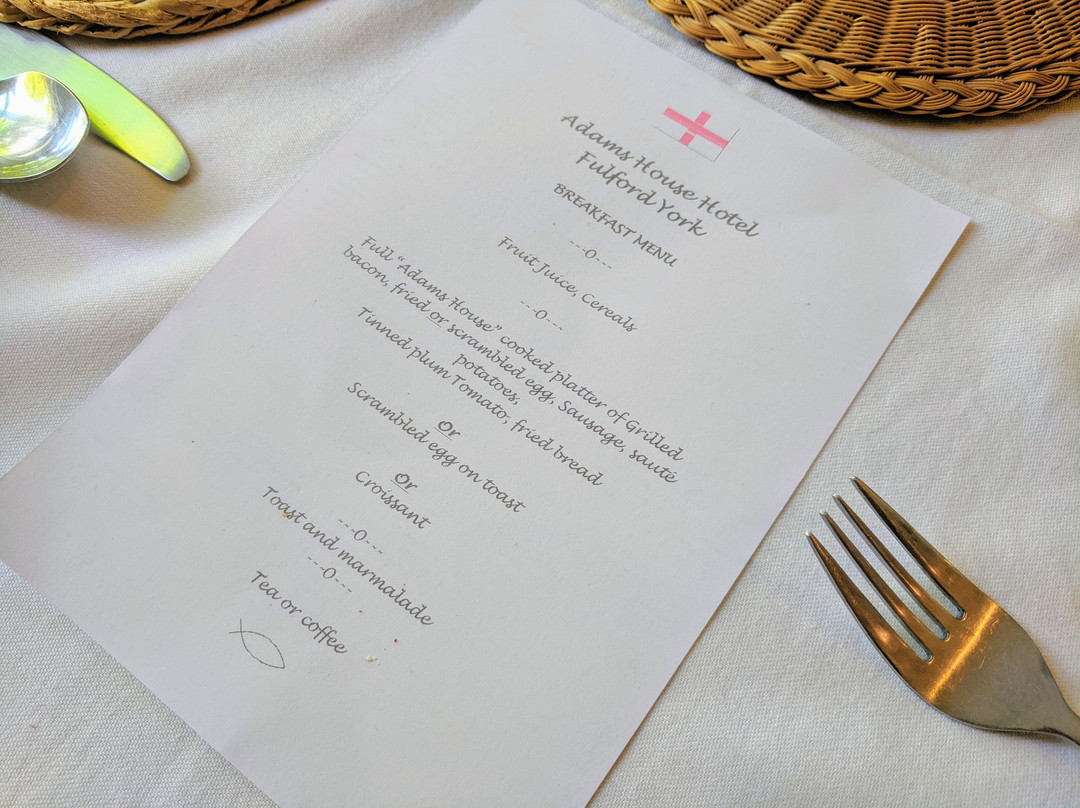 Adams House Hotel
Fulford York
BREAKFAST MENU
---0---
Fruit Juice, Cereals
---0---
Full “Adams House” cooked platter of Grilled
bacon, fried or scrambled egg, Sausage, sauté
potatoes,
Tinned plum Tomato, fried bread
Or
Scrambled egg on toast
Or
Croissant
---0---
Toast and marmalade
---0---
Tea or coffee